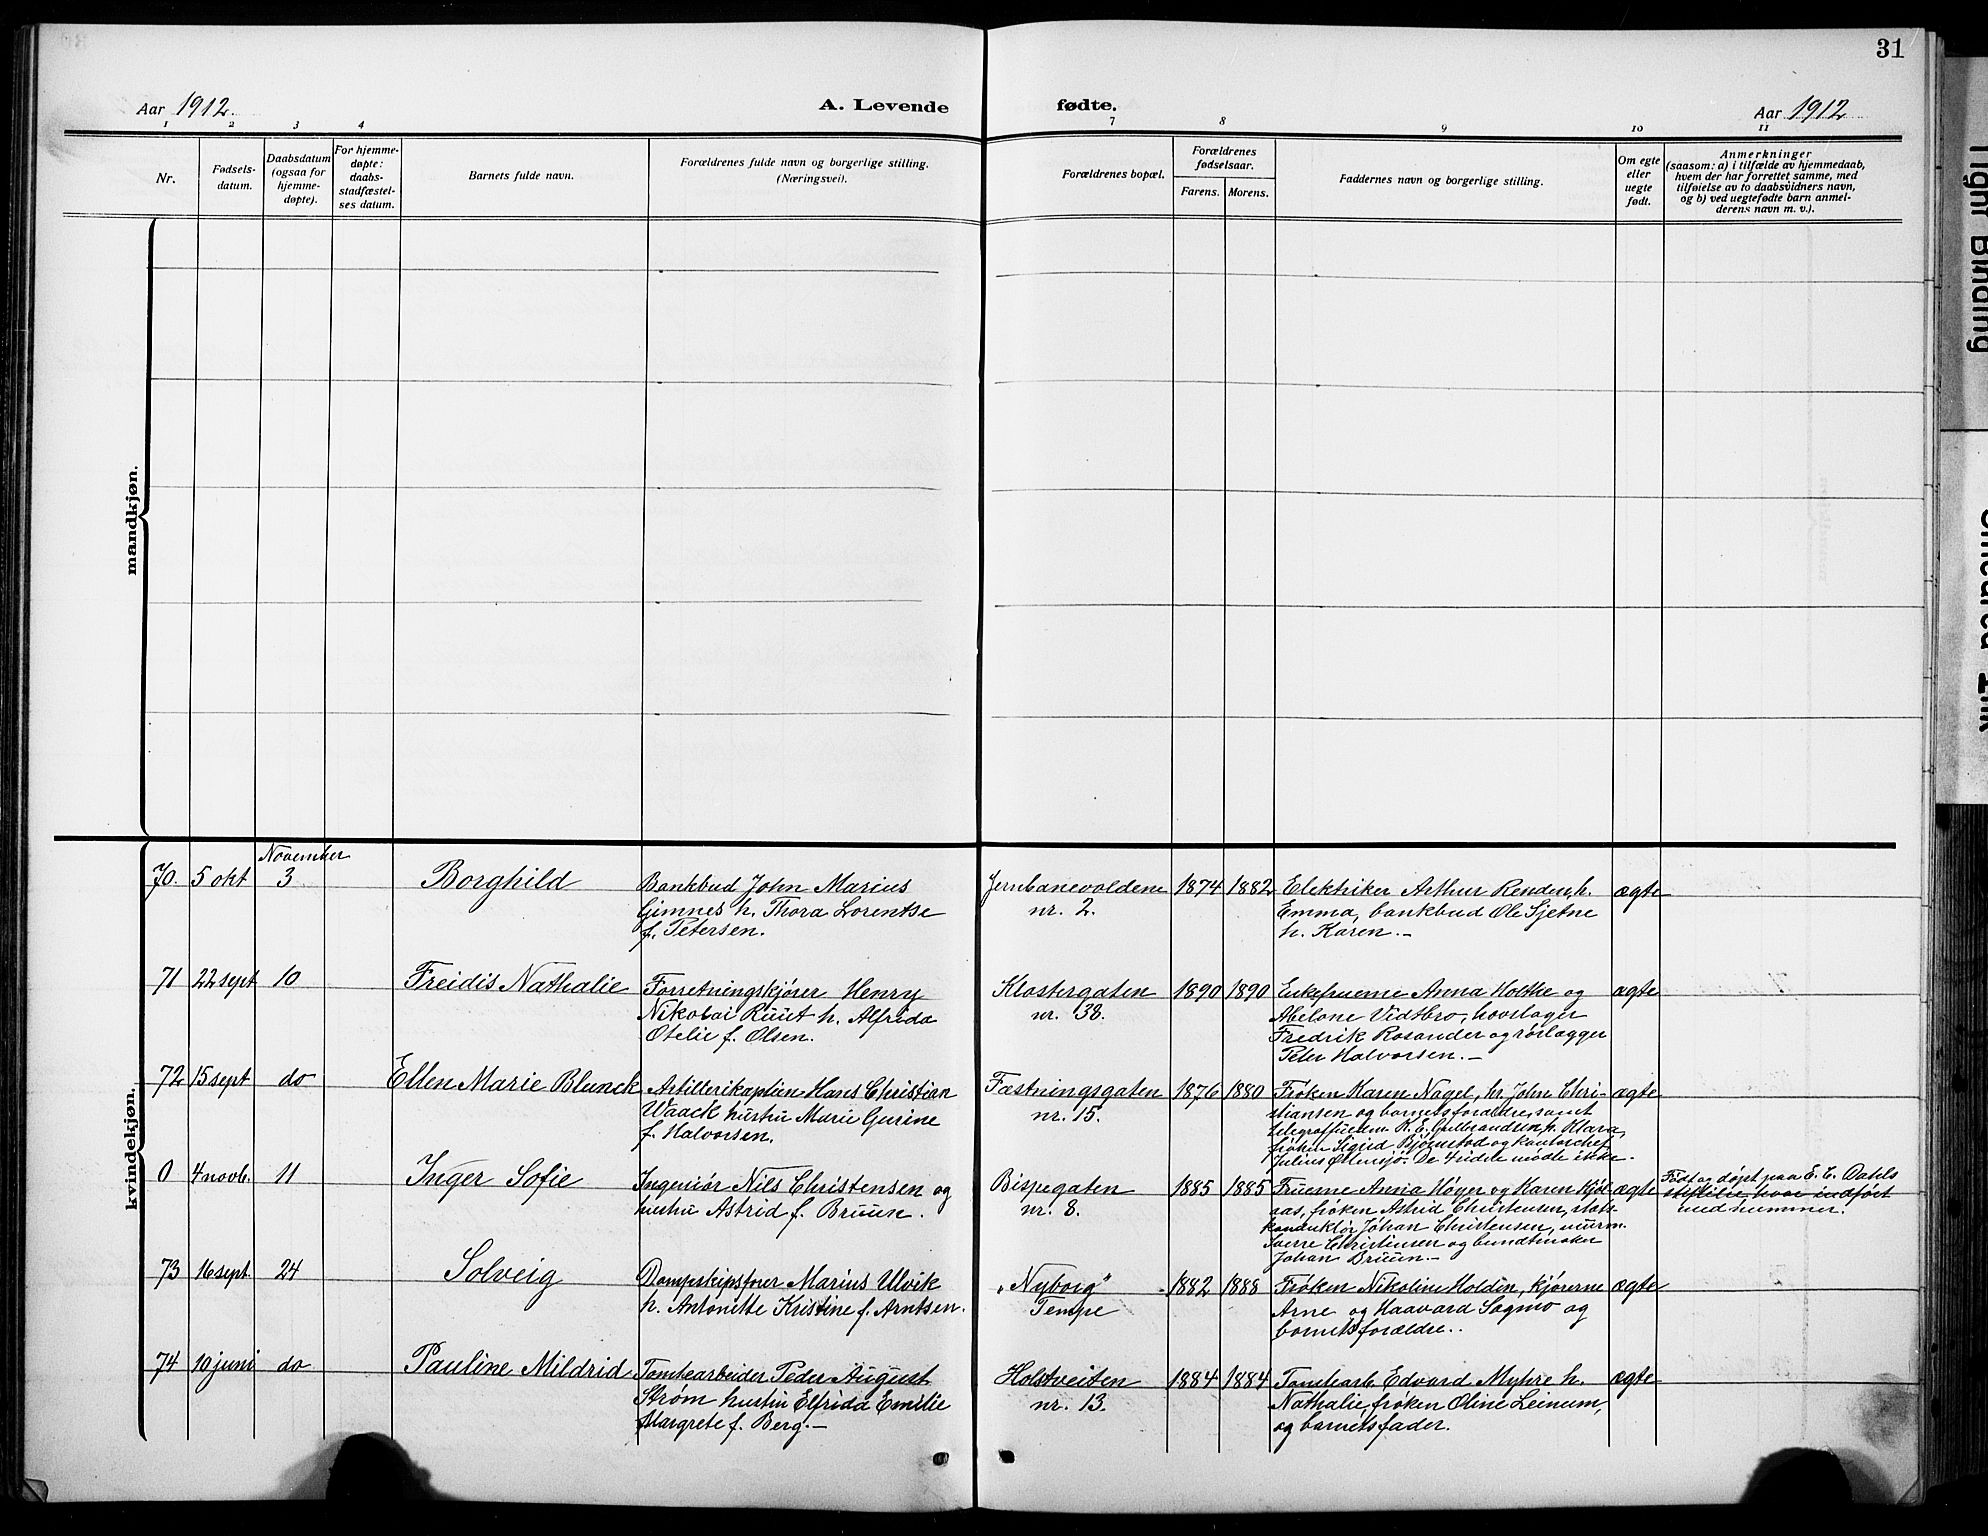 31
Aar 1912.
A. Levende
fødte.
Aar 1912
1 2 3 4
7 8 9 10 11
Nr.
Fødsels-
datum.
Daabsdatum
(ogsaa for
hjemme-
døpte).
For hjemme-
døpte:
daabs-
stadfæstel-
ses datum.
Barnets fulde navn.
Forældrenes fulde navn og borgerlige stilling.
(Næringsvei).
Forældrenes bopæl.
Forældrenes
fødselsaar.
Farens. Morens.
Faddernes navn og borgerlige stilling.
Om egte
eller
uegte
født.
Anmerkninger
(saasom: a) i tilfælde av hjemmedaab,
hvem der har forrettet samme, med
tilføielse av to daabsvidners navn,
og b) ved uegtefødte barn anmel-
derens navn m. v.).
mandkjøn.
kvindekjøn.
November
70. 5 okt 3
Borghild
Bankbud John Marius
Gimnes h. Thora Lorentse
f. Petersen.
Jernbanevoldene
nr. 2.
1874 1882
Elektriker Arthur Render, h.
Emma, bankbud Ole Sjetne
h. Karen.-
ægte
71 22 sept 10
Freidis Nathalie
Forretningskjører Henry
Nikolai Ruut h. Alfrida
Otelie f. Olsen.
Klostergaten
nr. 38.
1890 1890
Enkefruerne Anna Holthe og
Abelone Vidtbro, hovslager
Fredrik Rosander og rørlægger
Peter Halvorsen.-
ægte
72 15 sept do
Ellen Marie Blunck
Artillerikaptein Hans Christian
Waack hustru Marie Gurine
f. Halvorsen.
Fæstningsgaten
nr. 15.
1876 1880
Frøken Karen Nagel, hr. John Chri-
stiansen og barnets forældre, samt
h. Klara,
frøken Sigrid Bjørnstad og kontorchef
Julius De 4 sidste mødte ikke.
ægte
0 4 novb. 11
Inger Sofie
Ingeniør Nils Christensen og
hustru Astrid f. Bruun.
Bispegaten
nr. 8.
1885 1885
Fruerne Anna Høyer og Karen Kjøl-
aas, frøken Astrid Christensen, stats-
konduktør Johan Christensen, murm.
Sverre Christensen og bundtmaker
Johan Bruun.-
ægte
Født og døpt paa E. C. Dahls
stiftelse, hvor indført
med nummer.
73 16 sept 24
Solveig
Dampskipsfører Marius Ulvik
h. Antonette Kristine f. Arntsen.
"Nyborg"
Tempe
1882 1888
Frøken Nikoline Holdin, kjørerne
Arne og Haavard Sagmo og
barnets forældre.
ægte
74 10 juni do
Pauline Mildrid
Tomtearbeider Peder August
Strøm hustru Elfrida Emilie
Margrete f. Berg.-
Holstveiten
nr. 13.
1884 1884
Tomtearb. Edvard Myhre h.
Nathalie, frøken Oline Leinum,
og barnets fader.
ægte
Tight Binding